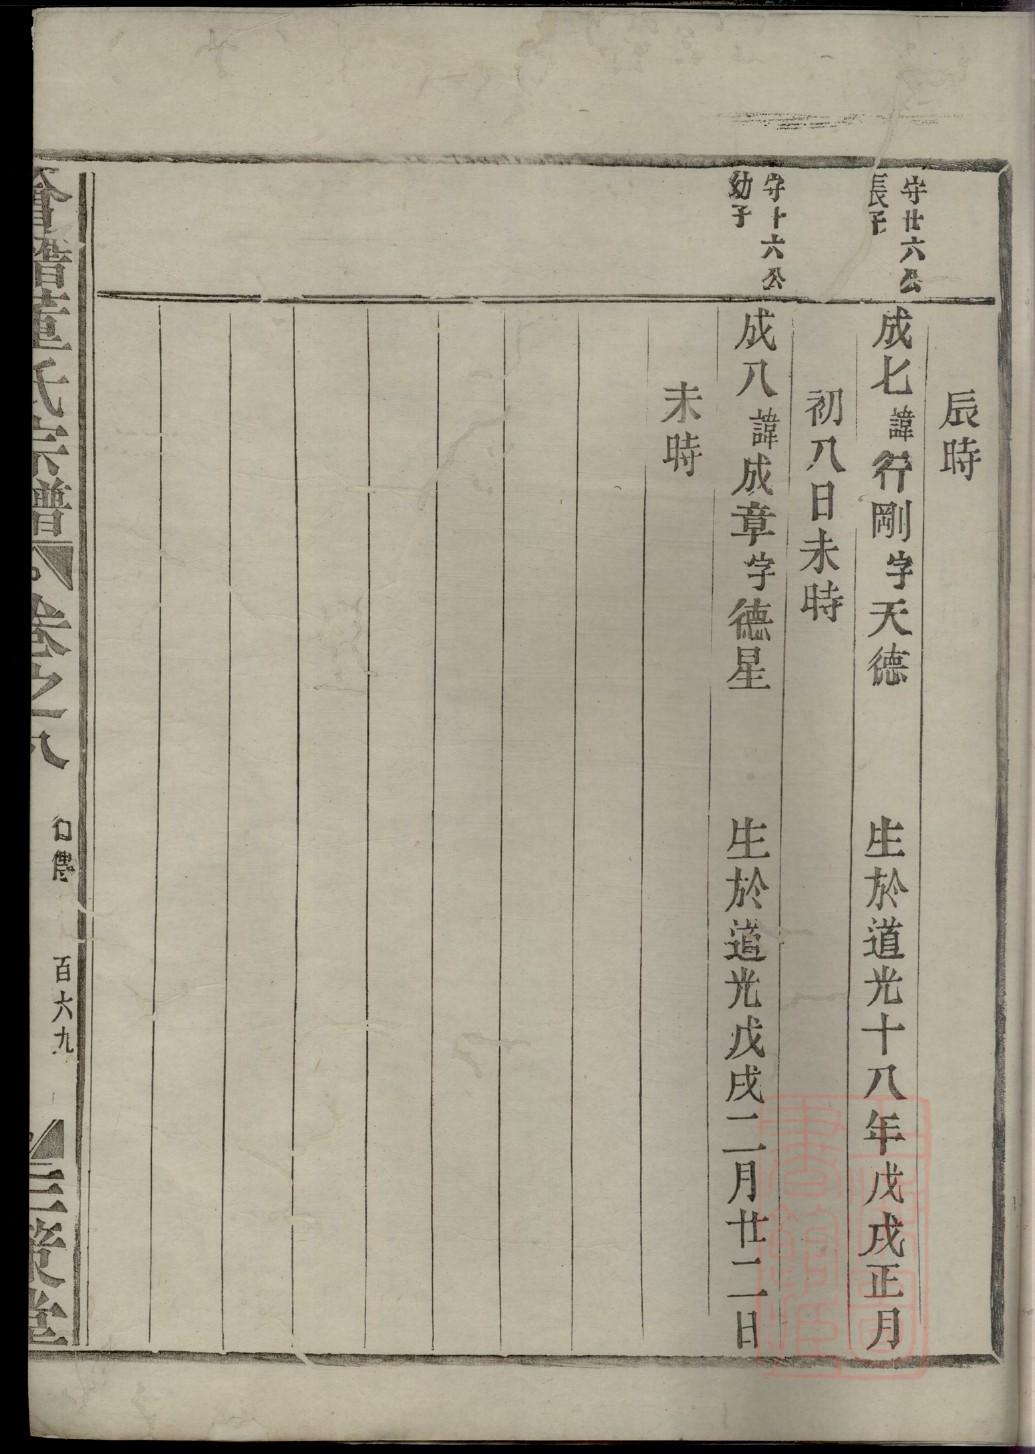 辰時
守廿六公
長子
成七諱行剛字天德 生於道光十八年戊戌正月
初八日未時
守十六公
幼子
成八諱成章字德星 生於道光戊戌二月廿二日
未時
會稽董氏宗譜 卷之八 行傳 百六九 三策堂